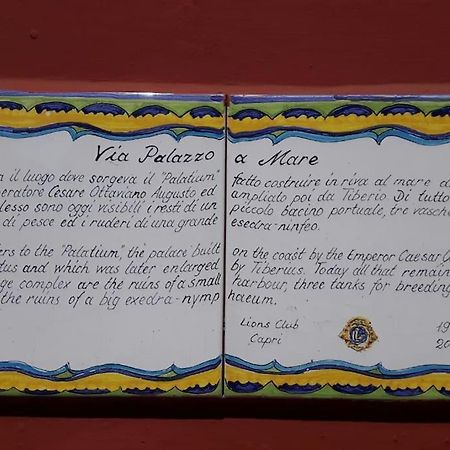 Via Palazzo a Mare
il luogo dove sorgeva il "Palatium" fatto costruire in riva al mare d
peratore Cesare Ottaviano Augusto ed ampliato poi da Tiberio. Di tutto
lesso sono oggi visibili i resti di un piccolo bacino portuale, tre vasche
di pesce ed i ruderi di una grande esedra-ninfeo.
ers to the "Palatium", the palace built on the coast by the Emperor Caesar O
tus and which was later enlarged by Tiberius. Today all that remain
ge complex are the ruins of a small harbour, three tanks for breeding
the ruins of a big exedra-nymp haeum.
Lions Club 19
Capri 20
L